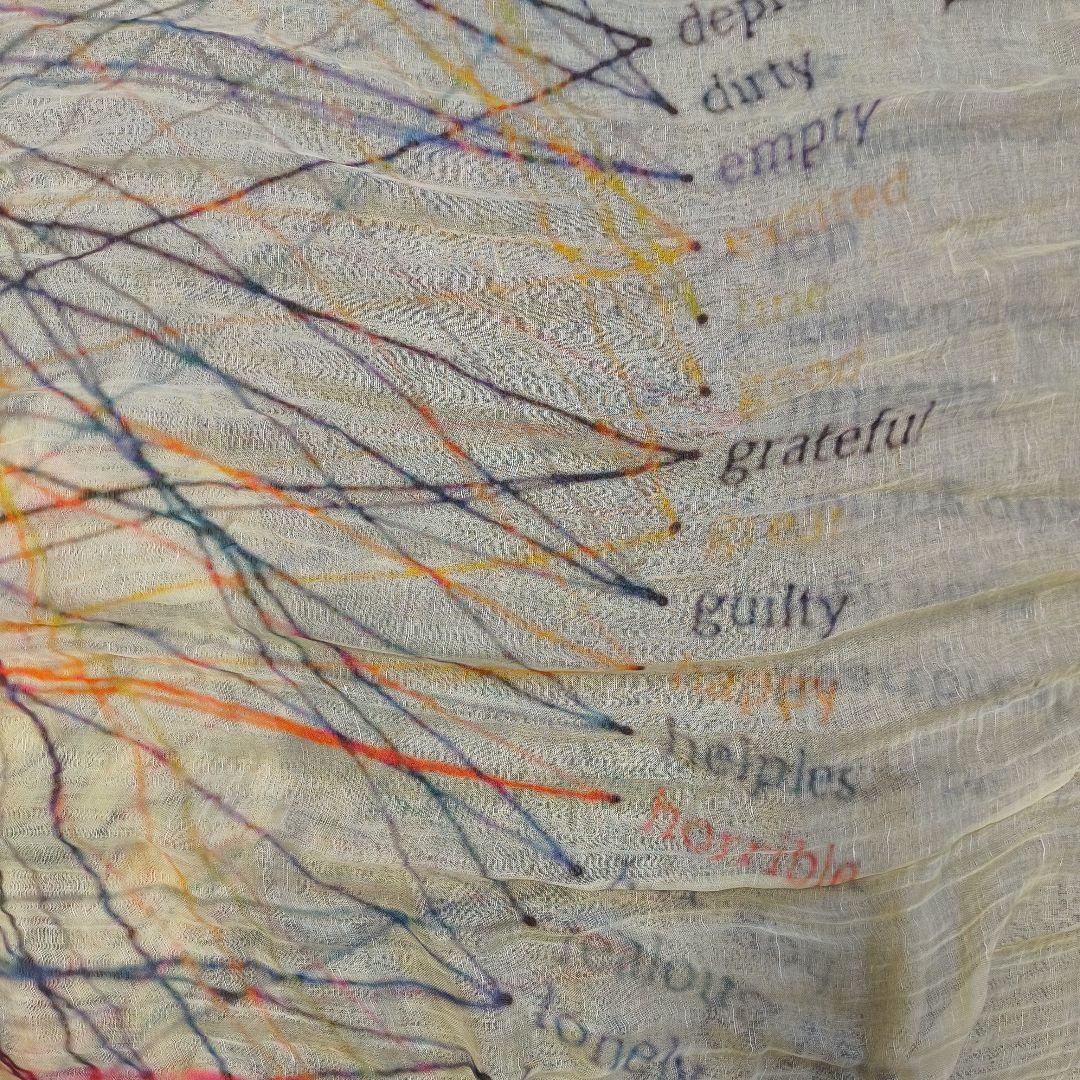 depr
dirty
empty
excited
fine
good
grateful
great
guilty
happy
helples
horrible
jealou
lonely